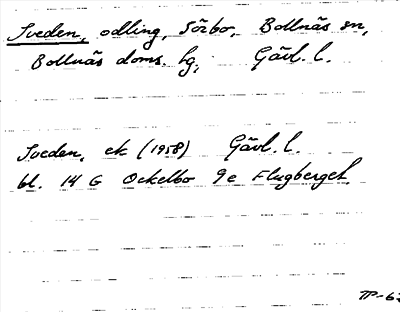 Sveden, odling, Sörbo, Bollnäs sn,
Bollnäs doms. hg, Gävl. l.
Sveden, ek (1958) Gävl. l.
bl. 14 G Ockelbo 9e Flugberget